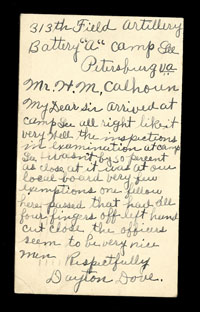 313th Field Artillery
Battery "A" Camp Lee
Petersburg Va.
Mr. H. M. Calhoun
My Dear Sir Arrived at
Camp Lee all right like it
very well the inspections
in examination at camp
Lee wasn't by 50 percent
as close at it was at our
local board very few
exemptions one fellow
here passed that had all
four fingers off left hand
cut close the officers
seem to be very nice
men Respectfully
Dayton Dove.